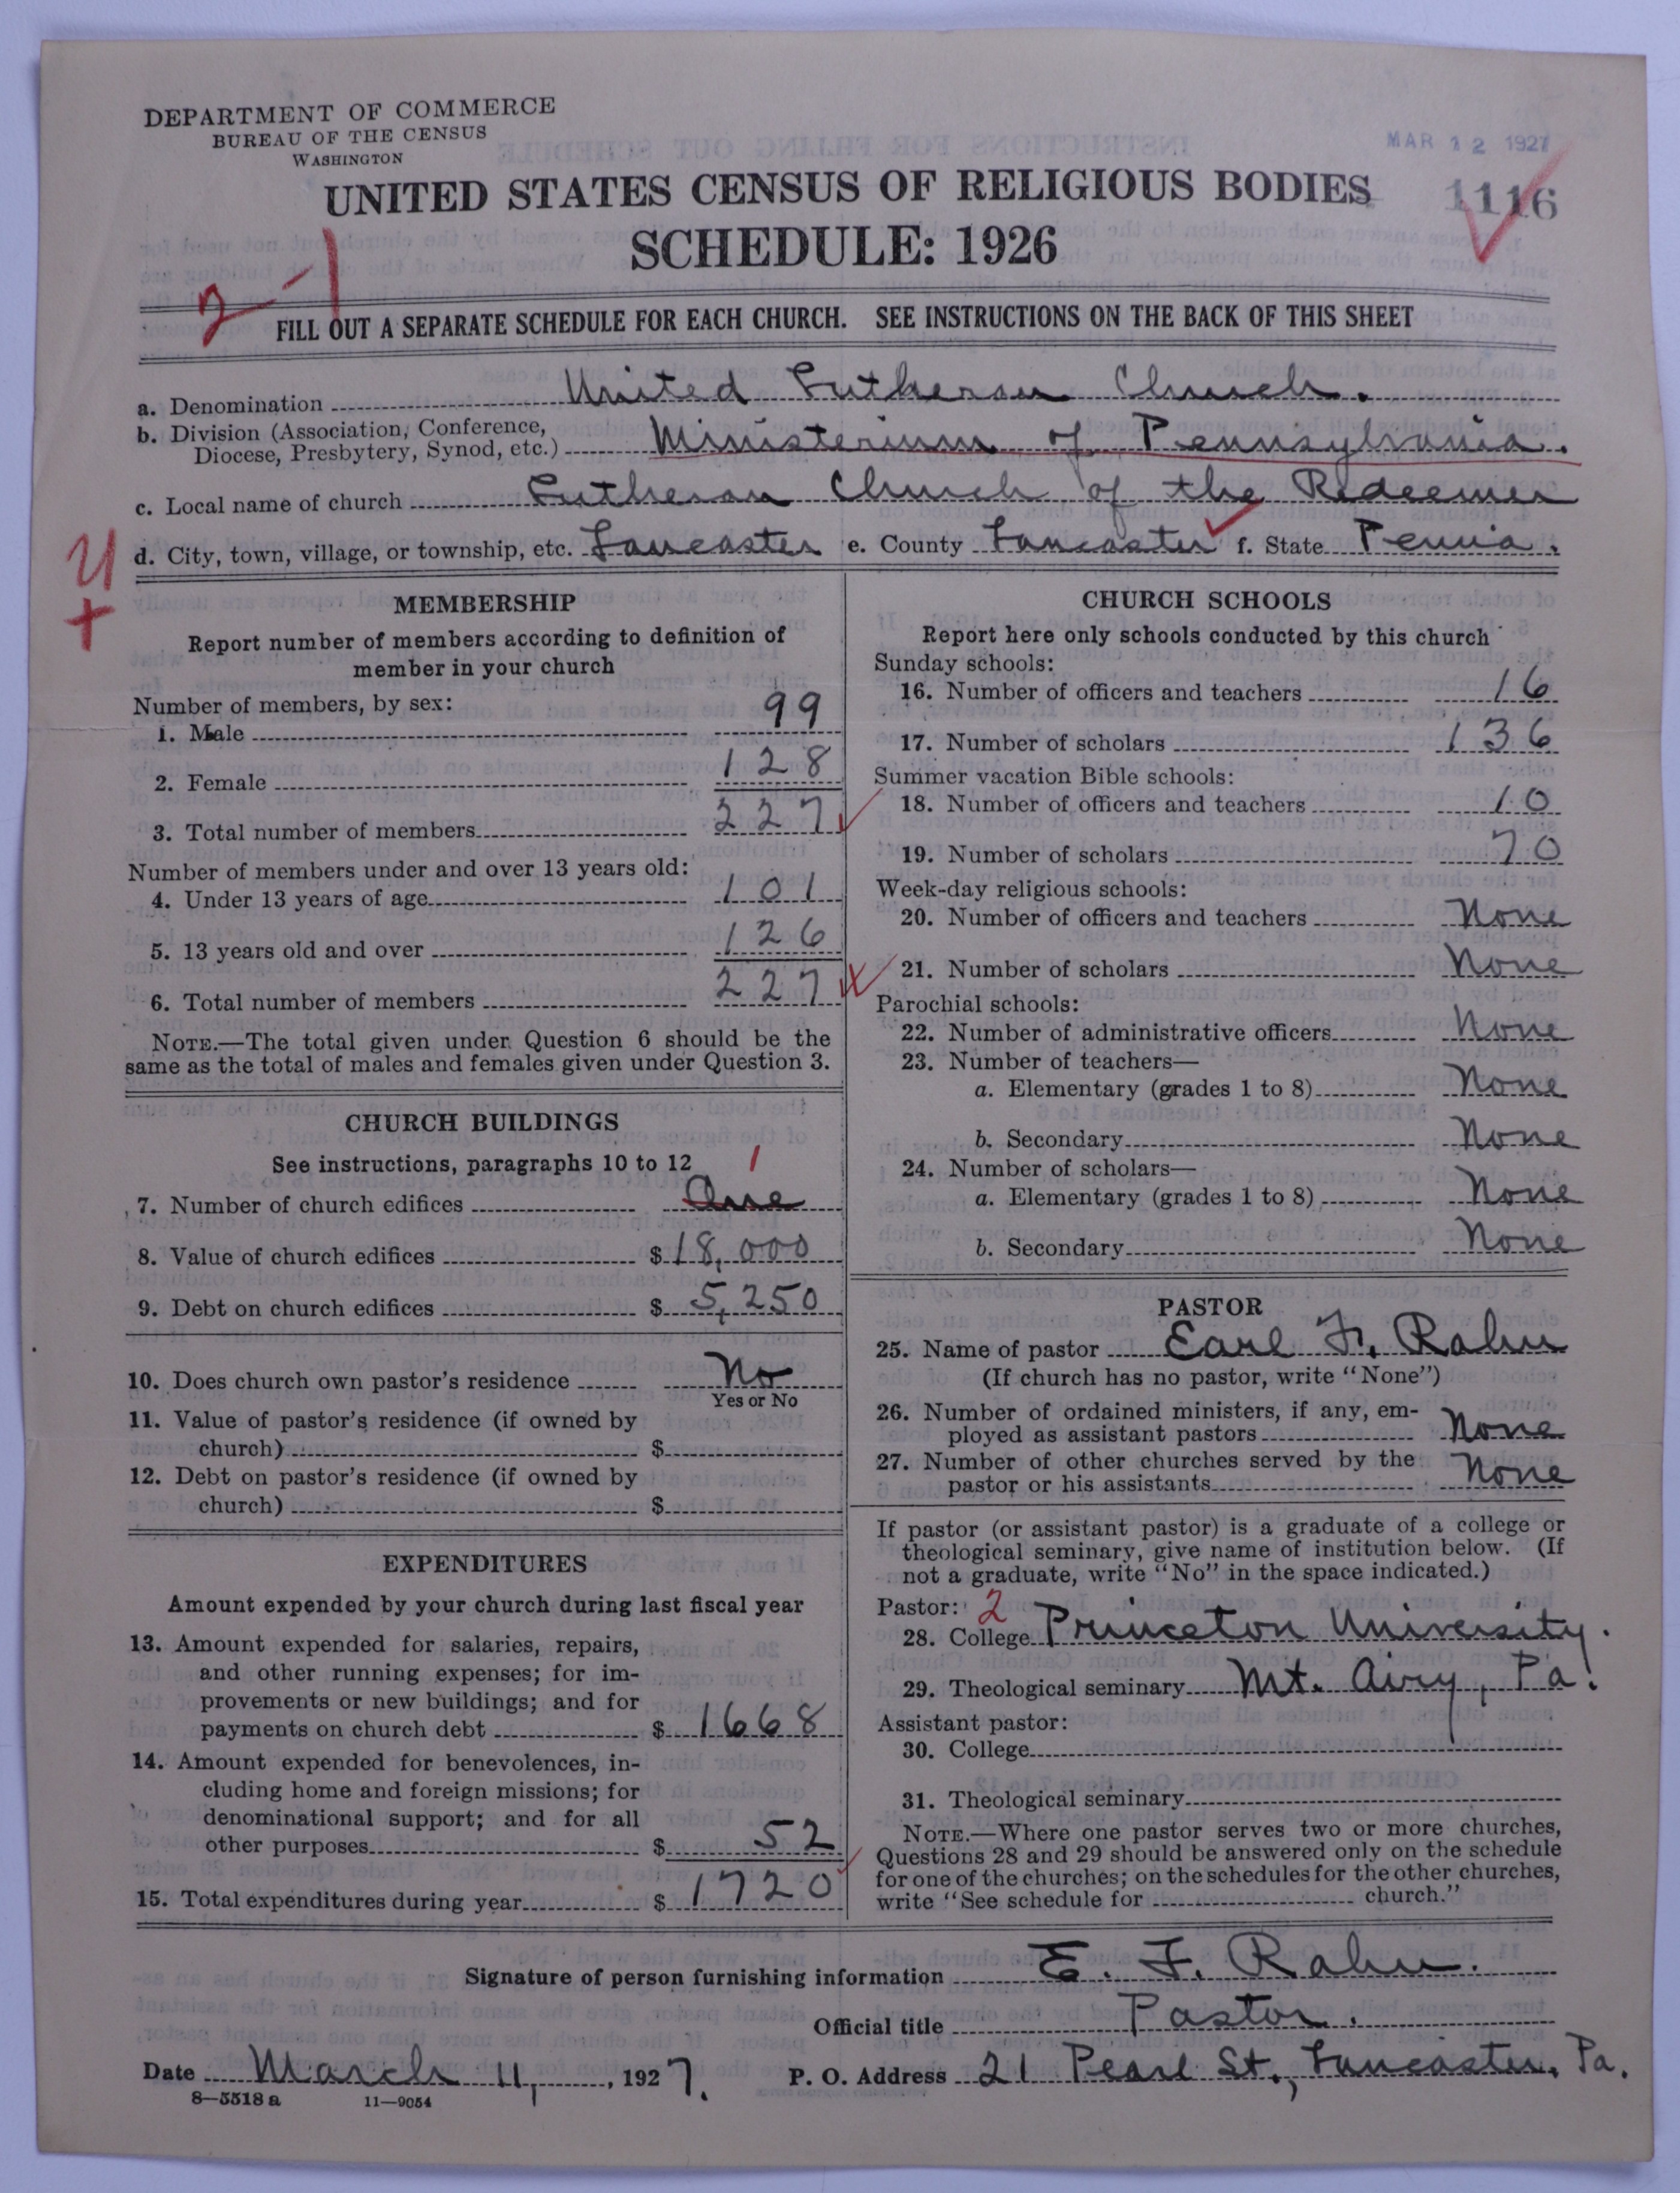 DEPARTMENT OF COMMERCE
BUREAU OF THE CENSUS
WASHINGTON
MAR 12 1927
1116
UNITED STATES CENSUS OF RELIGIOUS BODIES
SCHEDULE: 1926
2-1
FILL OUT A SEPARATE SCHEDULE FOR EACH CHURCH. SEE INSTRUCTIONS ON THE BACK OF THIS SHEET
a. Denomination United Lutheran Church.
b. Division (Association, Conference, Diocese, Presbytery, Synod, etc.) Ministerium of Pennsylvania.
c. Local name of church Lutheran Church of the Redeemer
d. City, town, village, or township, etc. Lancaster e. County Lancaster f. State Penna.
U
+
MEMBERSHIP
Report number of members according to definition of
member in your church
Number of members, by sex:
1. Male 99
2. Female 128
3. Total number of members 227
Number of members under and over 13 years old:
4. Under 13 years of age 101
5. 13 years old and over 126
6. Total number of members 227
NOTE.—The total given under Question 6 should be the
same as the total of males and females given under Question 3.
CHURCH BUILDINGS
See instructions, paragraphs 10 to 12
1
7. Number of church edifices One
8. Value of church edifices $18,000
9. Debt on church edifices $5,250
10. Does church own pastor's residence No
Yes or No
11. Value of pastor's residence (if owned by
church) $
12. Debt on pastor's residence (if owned by
church) $
EXPENDITURES
Amount expended by your church during last fiscal year
13. Amount expended for salaries, repairs,
and other running expenses; for im-
provements or new buildings; and for
payments on church debt $1668
14. Amount expended for benevolences, in-
cluding home and foreign missions; for
denominational support; and for all
other purposes $52
15. Total expenditures during year $1720
CHURCH SCHOOLS
Report here only schools conducted by this church
Sunday schools:
16. Number of officers and teachers 16
17. Number of scholars 136
Summer vacation Bible schools:
18. Number of officers and teachers 10
19. Number of scholars 70
Week-day religious schools:
20. Number of officers and teachers None
21. Number of scholars None
Parochial schools:
22. Number of administrative officers None
23. Number of teachers—
a. Elementary (grades 1 to 8) None
b. Secondary None
24. Number of scholars—
a. Elementary (grades 1 to 8) None
b. Secondary None
PASTOR
25. Name of pastor Earl F. Rahn
(If church has no pastor, write "None")
26. Number of ordained ministers, if any, em-
ployed as assistant pastors None
27. Number of other churches served by the
pastor or his assistants None
If pastor (or assistant pastor) is a graduate of a college or
theological seminary, give name of institution below. (If
not a graduate, write "No" in the space indicated.)
Pastor: 2
28. College Princeton University.
29. Theological seminary Mt. Airy, Pa.
Assistant pastor:
30. College
31. Theological seminary
NOTE.—Where one pastor serves two or more churches,
Questions 28 and 29 should be answered only on the schedule
for one of the churches; on the schedules for the other churches,
write "See schedule for church."
Signature of person furnishing information E. F. Rahn.
Official title Pastor.
Date March 11, 1927. P. O. Address 21 Pearl St., Lancaster, Pa.
8—5518 a 11—9054